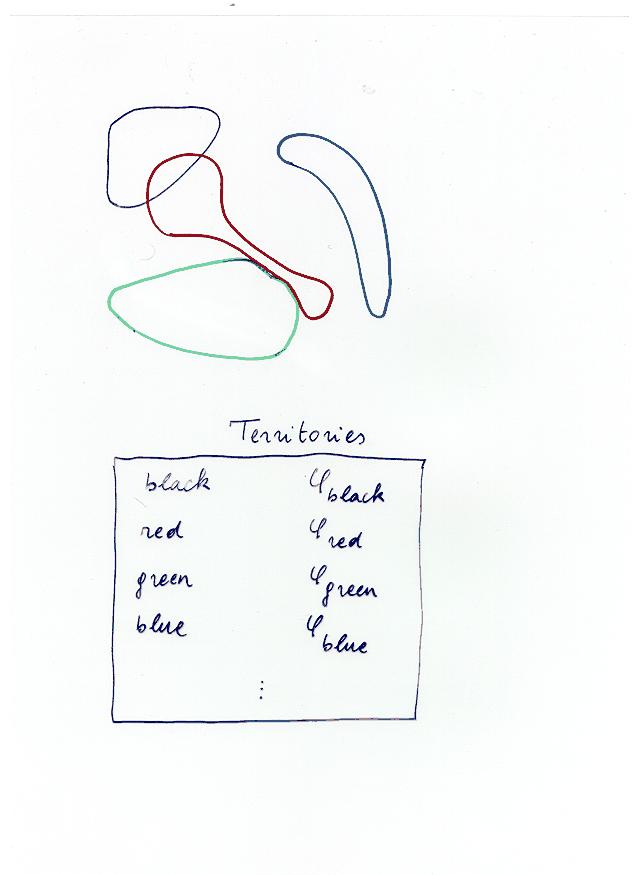 Territories
black φ black
red φ red
green φ green
blue φ blue
⋮